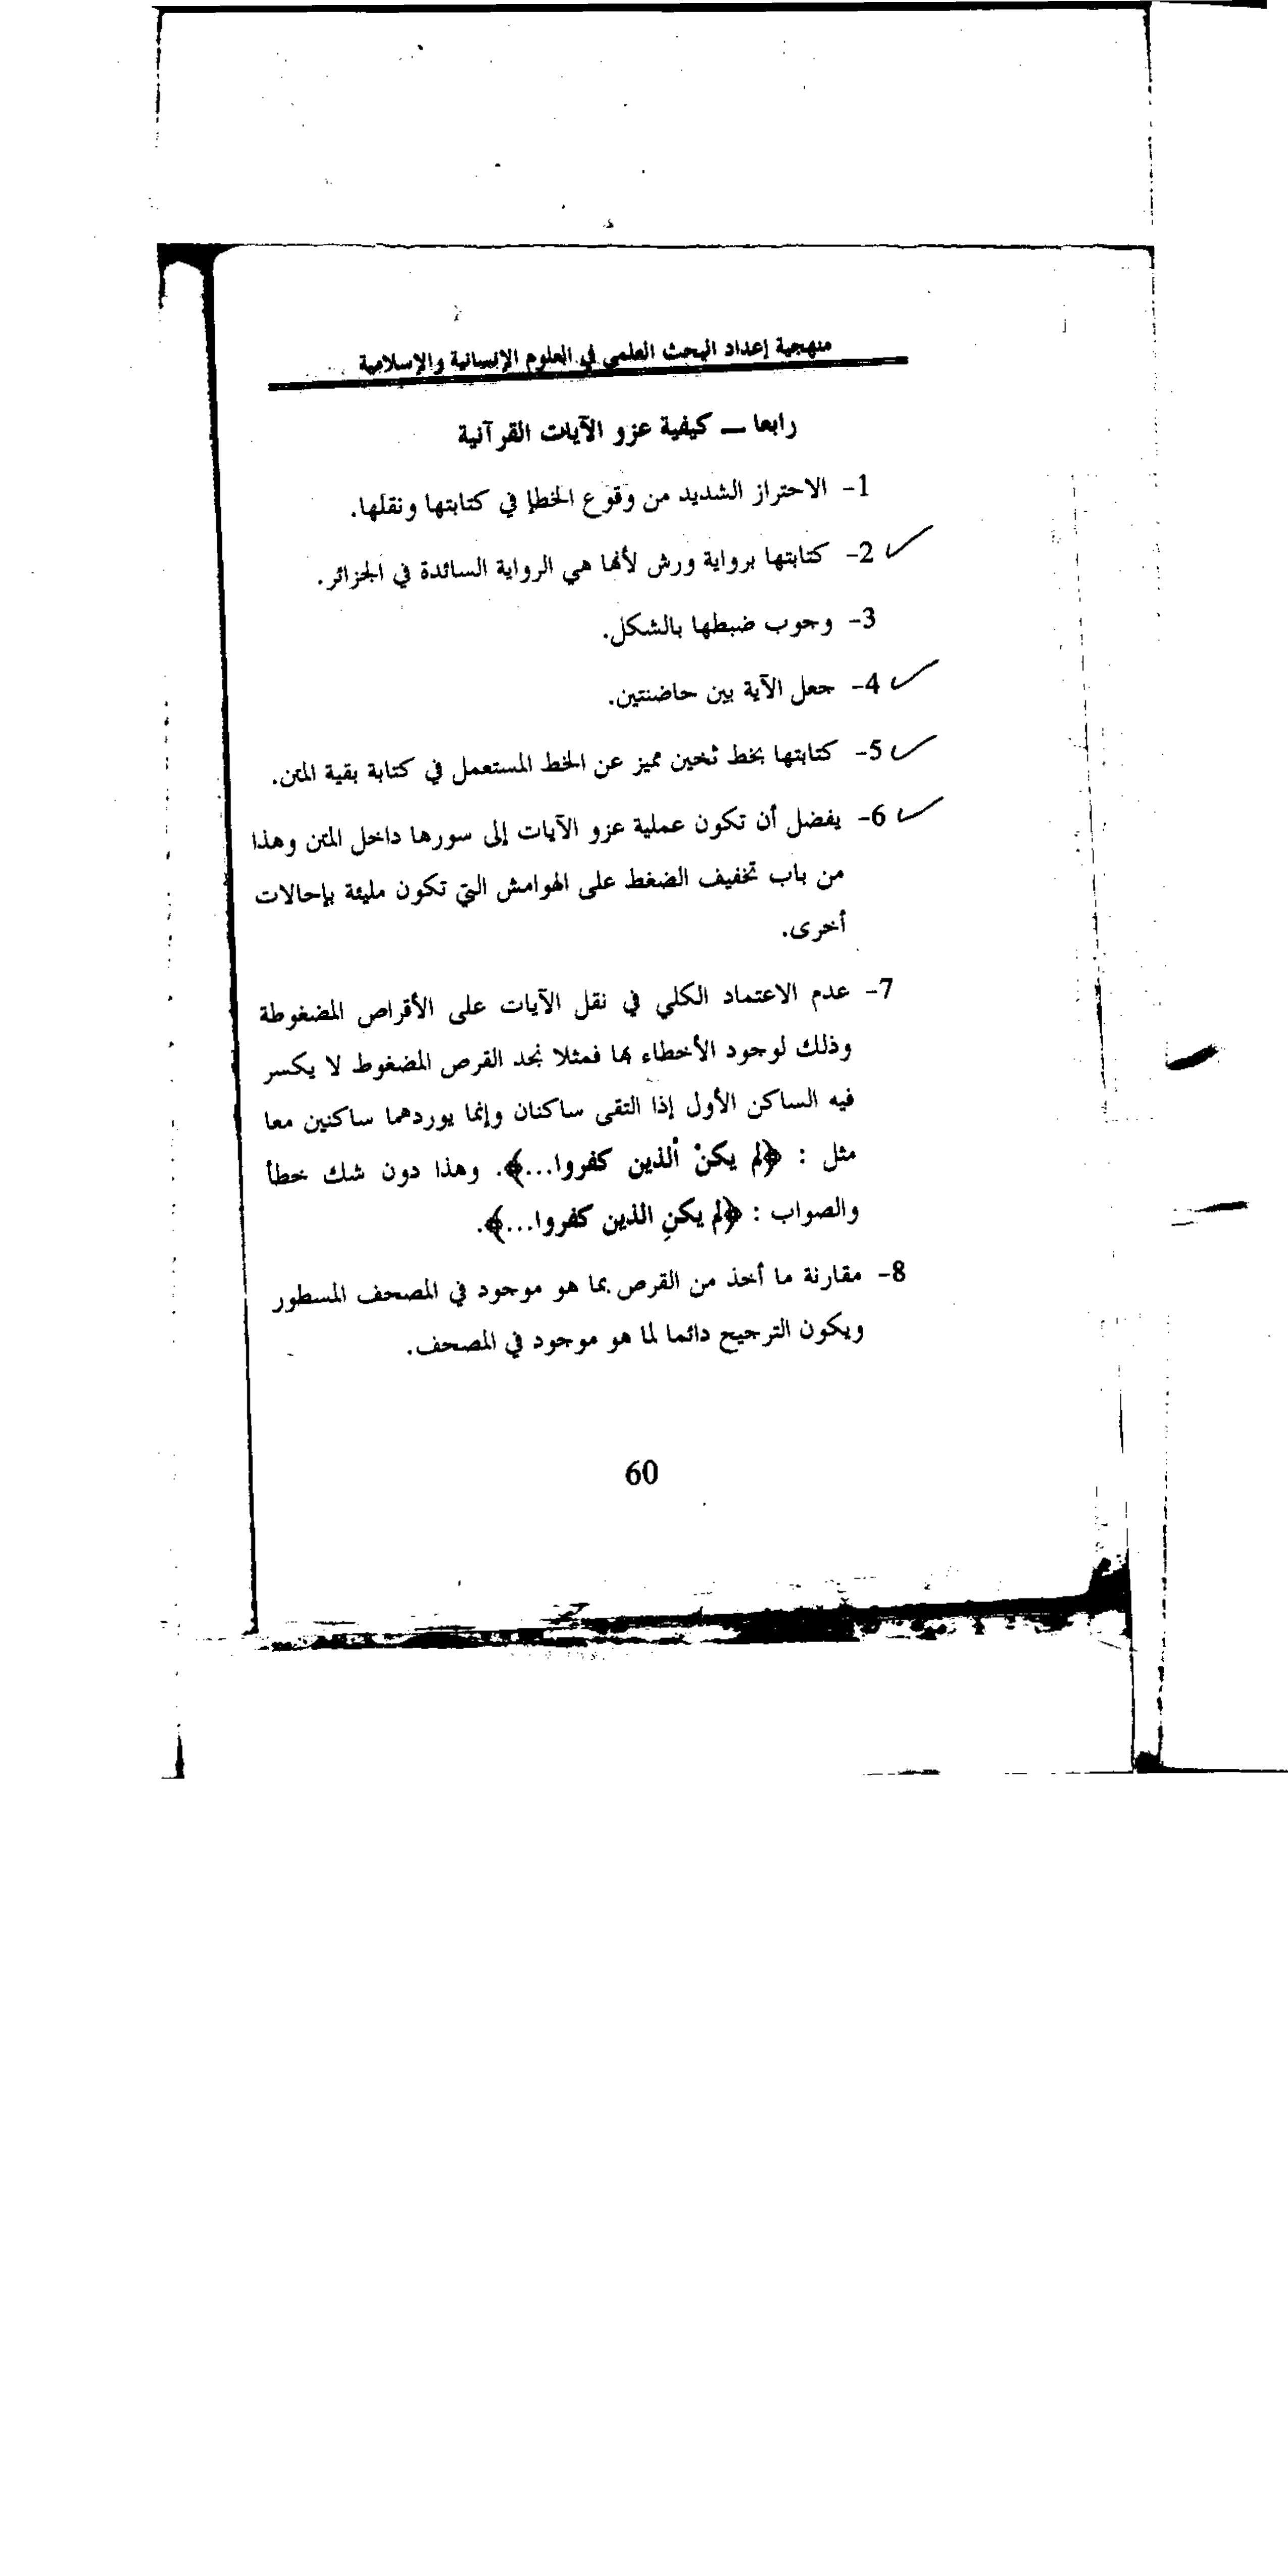 منهجية إعداد البحث العلمي في العلوم الإنسانية والإسلامية
رابعا ــ كيفية عزو الآيات القرآنية
1- الاحتراز الشديد من وقوع الخطإ في كتابتها ونقلها.
2- كتابتها برواية ورش لأنها هي الرواية السائدة في الجزائر.
3- وجوب ضبطها بالشكل.
4- جعل الآية بين حاضنتين.
5- كتابتها بخط ثخين مميز عن الخط المستعمل في كتابة بقية المتن.
6- يفضل أن تكون عملية عزو الآيات إلى سورها داخل المتن وهذا
من باب تخفيف الضغط على الهوامش التي تكون مليئة بإحالات
أخرى.
7- عدم الاعتماد الكلي في نقل الآيات على الأقراص المضغوطة
وذلك لوجود الأخطاء بها فمثلا نجد القرص المضغوط لا يكسر
فيه الساكن الأول إذا التقى ساكنان وإنما يوردهما ساكنين معا
مثل : ﴿لم يكنْ ألذين كفروا...﴾. وهذا دون شك خطأ
والصواب : ﴿لم يكنِ الذين كفروا...﴾.
8- مقارنة ما أخذ من القرص بما هو موجود في المصحف المسطور
ويكون الترجيح دائما لما هو موجود في المصحف.
60